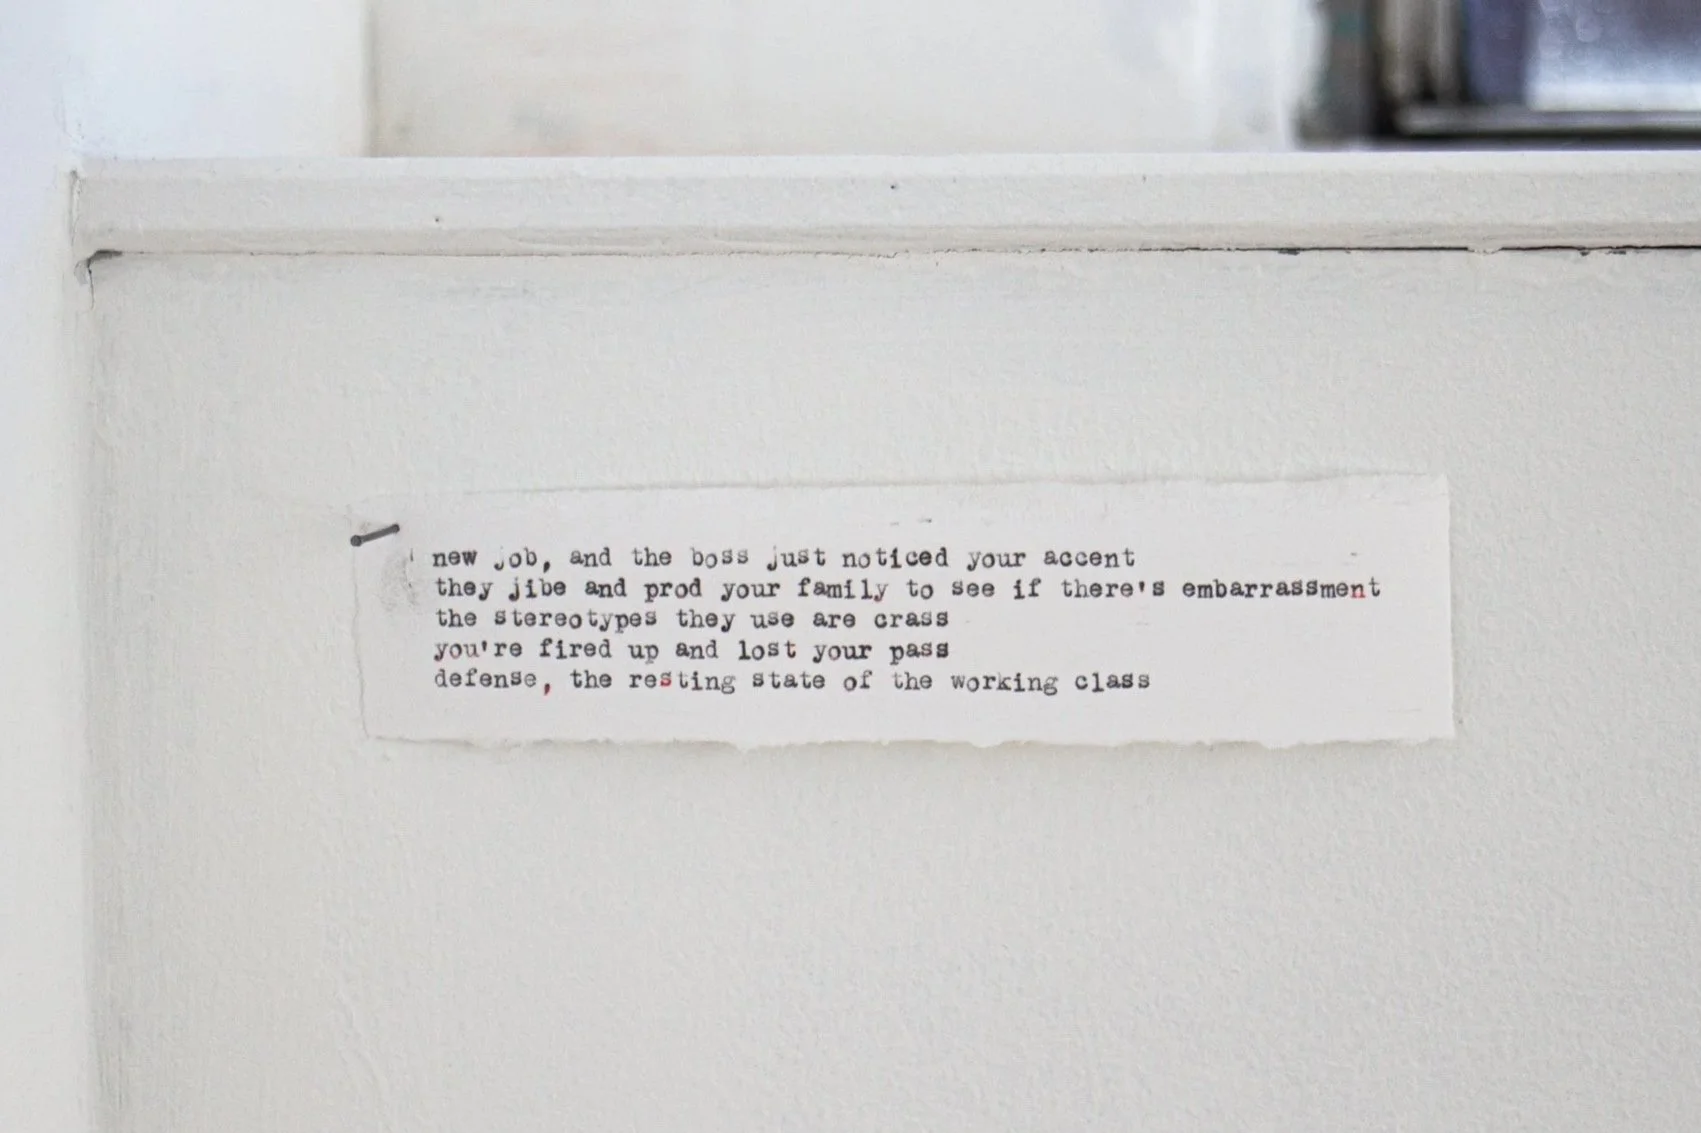 new job, and the boss just noticed your accent
they jibe and prod your family to see if there's embarrassment
the stereotypes they use are crass
you're fired up and lost your pass
defense, the resting state of the working class